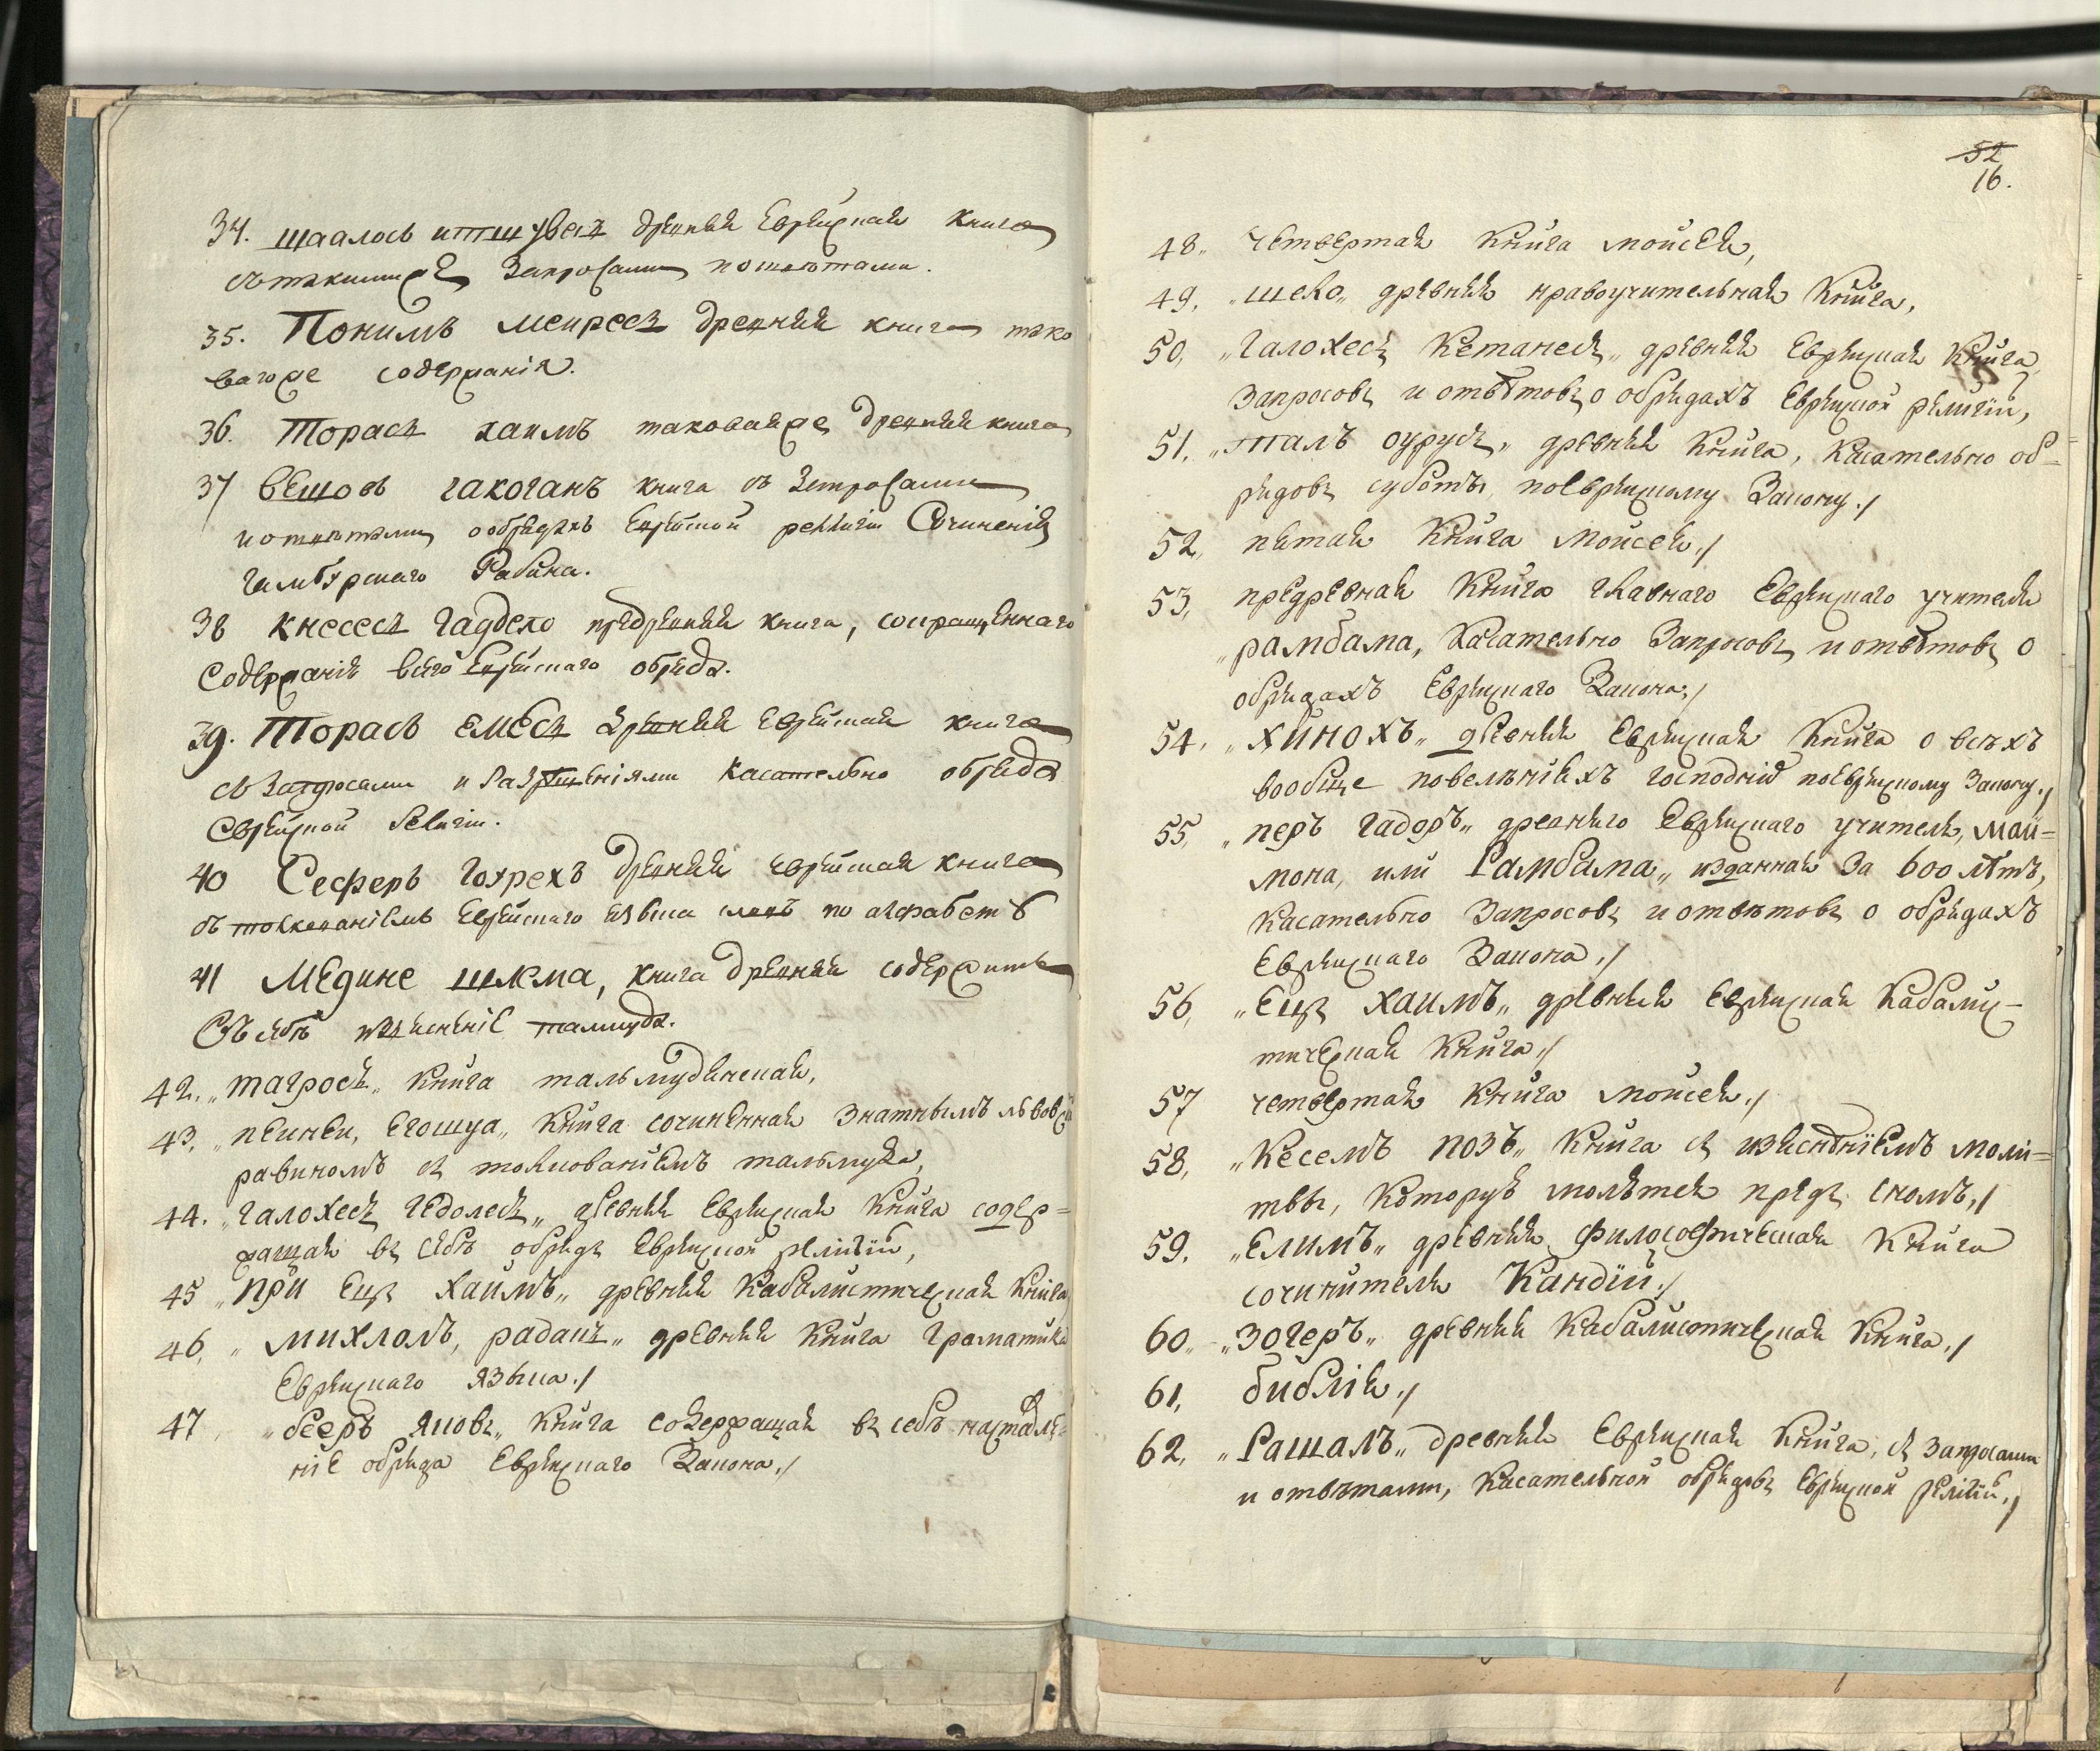 34. шаалось итшувесъ древняя Еврейская книга
съ такимиже Запросами и ответами.
35. Понимъ Меиресъ древняя книга тако
вагоже содержанія.
36. Торасъ хаимъ таковаяже древняя книга
37 вешовъ гакоганъ книга съ Запросами
и ответами о обрядахъ Еврейской религіи Сочиненія
гамбурскаго Рабина.
38 кнесесъ гаудело предревняя книга, сокращеннаго
Содержанія всего Еврейскаго обряда.
39. Торасъ емесъ древняя Еврейская книга
съ Запросами и Разрешеніями касательно обряда
Еврейской Религіи.
40 Сеферъ Гохрехъ древняя еврейская книга
съ толкованіемъ Еврейскаго языка словъ по алфабетѣ
41 Медине шлема, книга древняя содержитъ
Въ себѣ изъясненіе талмуда.
42. „тагрось„ книга тальмудянская,
43. „пеинеи, Егошуа„ книга сочиненная Знатнымъ львовск
равиномъ съ толкованіемъ тальмуда,
44. „галохесъ гедолесъ„ древняя Еврейская книга содер=
жащая въ себѣ обрядъ Еврейской религіи,
45 „при Ецъ хаимъ„ древняя кабалистическая книга
46, „михломъ, радакъ„ древняя книга граматика
Еврейскаго языка./
47, „бееръ яковъ„ книга содержащая въ себѣ наставле=
ніе обряда Еврейскаго Закона./
52
16.
48„ Четвертая книга мойсея,
49, „шело„ древняя нравоучительная книга,
50, „галохесъ кетанесъ„ древняя Еврейская книга
Запросовъ и отвѣтовъ о обрядахъ Еврейской религіи,
51. „талъ оурусъ„ древняя книга, касательно об=
рядовъ субботы, по Еврейскому Закону./
52, пятая книга мойсея./
53, предревная книга главнаго Еврейскаго учителя
„рамбама, касательно Запросовъ и отвѣтовъ о
обрядахъ Еврейскаго Закона./
54. „хинохъ„ древняя Еврейская книга о всѣхъ
вообще повелѣніяхъ господнія по Еврейскому Закону./
55, „перъ гадоръ„ древняго Еврейскаго учителя, май=
мона, или Рамбама„ изданная за 600 лѣтъ,
касательно Запросовъ и отвѣтовъ о обрядахъ
Еврейскаго Закона./
56, „Ецъ хаимъ„ древняя Еврейская кабалис-
тическая книга./
57 четвертая книга мойсея./
58, „кесемъ позъ„ книга съ изъясненіемъ моли=
твы, которуѣ молятся предъ сномъ./
59. „Елимъ„ древняя философическая книга
сочинителя Кандіи./
60„ „Зогеръ„ древняя кабалистическая книга./
61, библія./
62, „Рашалъ„ древняя Еврейская книга, съ запросами
и отвѣтами, касательной обрядовъ Еврейской религіи./